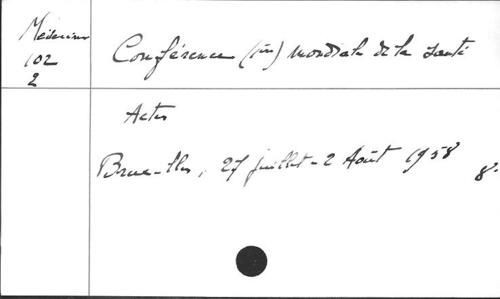 Médecine
102
2
Conférence (1ère) mondiale de la santé
Actes
Bruxelles, 27 juillet - 2 Août 1958
8°